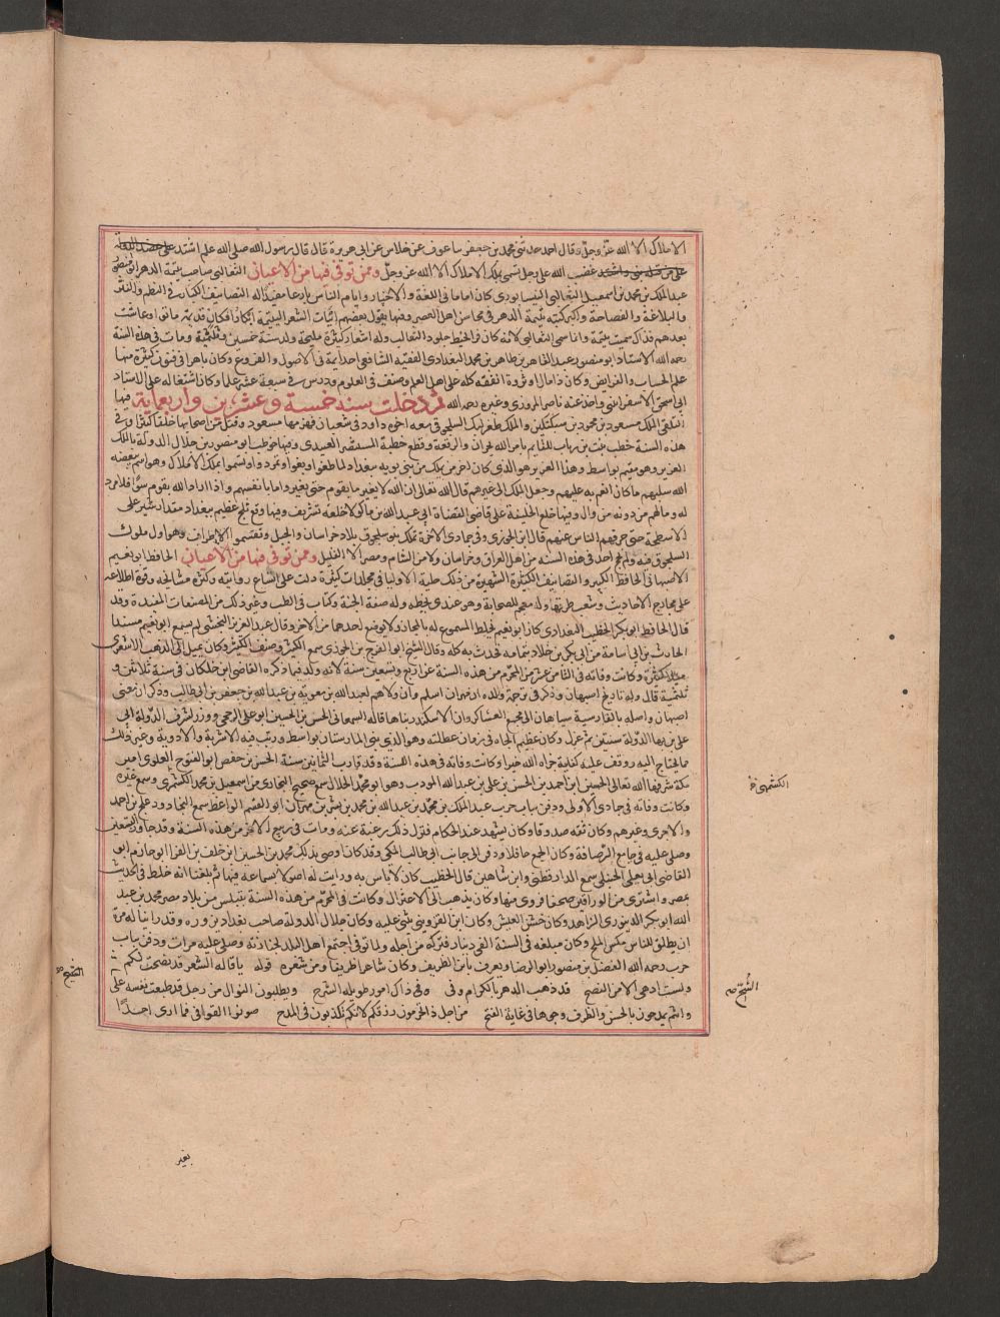 الاملاك الا الله عز وجل وقال احمد حدثني محمد بن جعفر ساعوف عن خلاس عن ابي هريرة قال قال رسول الله صلى الله عليه اشتد غضب الله
على من قتله نبي واشتد غضب الله على رجل تسمى بملك الاملاك لا ملك الا الله عز وجل وممن توفى فيها من الاعيان الثعالبي صاحب يتيمة الدهر ابو منصور
عبد الملك بن محمد بن اسمعيل الثعالبي النيسابوري كان اماما في اللغة والاخبار وايام الناس بارعا مفيدا له التصانيف الكبار في النظم والنثر
والبلاغة والفصاحة واكبر كتبه يتيمة الدهر في محاسن اهل العصر وفيها يقول بعضهم ابيات اشعار اليتيمة ابكار افكار قديمة ماتوا وعاشت
بعدهم فلذاك سميت يتيمة وانما سمي الثعالبي لانه كان فرا يخيط جلود الثعالب وله اشعار كثيرة مليحة ولد سنة خمسين وثلثمية ومات في هذه السنة
رحمه الله الاستاد ابو منصور عبد القاهر بن طاهر بن محمد البغدادي الفقيه الشافعي احد ايمة في الاصول والفروع وكان ماهرا في فنون كثيرة منها
علم الحساب والفرايض وكان ذا مال وثروة انفقه كله على اهل العلم وصنف في العلوم ودرس في سبعة عشر علما وكان اشتغاله على الاستاد
ابي اسحق الاسفرايني واخذ عنه ناصر المروزي وغيره رحمه الله ثم دخلت سنة خمسة وعشرين واربعماية فيها
التقى الملك مسعود بن محمود بن سبكتكين والملك طغرلبك السلجوقي ومعه اخوه داود في شعبان فهزمهما مسعود وقتل من اصحابهما خلقا كثيرا وفي
هذه السنة خطب شبيب بن ريان للقايم بامر الله بحران والرقة وقطع خطبة المستنصر العبيدي وفيها خوطب ابو منصور بن جلال الدولة بالملك
العزيز وهو مقيم بواسط وهذا العزيز هو الذي كان اخر من ملك من بني بويه ببغداد لما طغوا وبغوا وتمردوا وتسموا بملك الاملاك وهو اسم يبغضه
الله سلبهم ما كان انعم به عليهم وجعل الملك الى غيرهم قال الله تعالى ان الله لا يغير ما بقوم حتى يغيروا ما بانفسهم واذا اراد الله بقوم سوءا فلا مرد
له وما لهم من دونه من وال وفيها خلع الخليفة على قاضي القضاة ابي عبد الله بن ماكولا خلعة تشريف وفيها وقع ثلج عظيم ببغداد مقدار شبر على
الاسطحة حتى جرفه الناس عنهم قال ابن الجوزي وفي جمادى الاخرة تملك بنو سلجوق بلاد خراسان والجبل وتقسموا الاطراف وهو اول ملوك
السلجوقيه ولم يحج احد في هذه السنة من اهل العراق وخراسان ولا من الشام ومصر الا القليل وممن توفى فيها من الاعيان الحافظ ابو نعيم
الاصبهاني الحافظ الكبير والتصانيف الكثيرة الشهيرة من ذلك حلية الاوليا في مجلدات كثيرة دلت على اتساع روايته وكثرة مشايخه وقوة اطلاعه
على مخارج الاحاديث وشعب طرقها وله معجم الصحابة وهو عندي بخطه وله صفة الجنة وكتاب في الطب وغير ذلك من المصنفات المفيدة وقد
قال الحافظ ابو بكر الخطيب البغدادي كان ابو نعيم يخلط المسموع له بالمجاز ولا يوضح احدهما من الاخر وقال عبد العزيز النخشبي لم يسمع ابو نعيم مسند
الحارث بن ابي اسامة من ابي بكر بن خلاد بتمامه فحدث به كله وقال الشيخ ابو الفرج بن الجوزي سمع الكثير وصنف الكثير وكان يميل الى المذهب الاشعري
ميلا كثيرا وكانت وفاته في الثامن عشر من المحرم من هذه السنة عن اربع وتسعين سنة لانه ولد فيما ذكره القاضي ابن خلكان في سنة ثلاثين و
ثلثمية قال وله تاريخ اصبهان وذكر في ترجمة والده ان مهران اسلم وان ولاءهم لعبد الله بن معوية بن عبد الله بن جعفر بن ابي طالب وذكر ان معنى
اصبهان واصله بالفارسية سپاهان اي مجمع العساكر وان الاسكندر بناها قاله السمعاني الحسن بن الحسين ابو علي الرخجي ووزر لشرف الدولة ابي
علي بن بهاء الدولة سنتين ثم عزل وكان عظيم الجاه في زمان عطلته وهو الذي بنى المارستان بواسط ورتب فيه الاشربة والادوية وغير ذلك
مما يحتاج اليه ووقف عليه كفايته جزاه الله خيرا وكانت وفاته في هذه السنة وقد قارب الثمانين سنة الحسن بن حفص ابو الفتوح العلوي امير
مكة شرفها الله تعالى الحسين بن احمد بن الحسن بن علي بن عبد الله المودب وهو ابو محمد الخلال سمع صحيح البخاري من اسمعيل بن محمد الكشمري وسمع غيره
وكانت وفاته في جمادى الاولى ودفن بباب حرب عبد الملك بن محمد بن عبد الله بن محمد بن بشر بن مهران ابو القسم الواعظ سمع النجاد ودعلج بن احمد
والاجري وغيرهم وكان ثقة صدوقا وكان يشهد عند الحكام فترك ذلك رغبة عنه ومات في ربيع الاخر من هذه السنة وقد جاوز التسعين
وصلي عليه في جامع الرصافة وكان الجمع حافلا ودفن الى جانب ابي طالب المكي وقد كان اوصى بذلك محمد بن الحسين ابن خلف بن الفرا ابو حازم ابو
القاضي ابي يعلى الحنبلي سمع الدارقطني وابن شاهين قال الخطيب كان لا باس به ورايت له اصولا سماعه فيها ثم بلغنا انه خلط في الحديث
بمصر واشترى من الوراقين صحفا فروى منها وكان يذهب الى الاعتزال وكانت في المحرم من هذه السنة بتنيس من بلاد مصر محمد بن عبد
الله ابو بكر الدينوري الزاهد وكان خشن العيش وكان ابن القزويني يثني عليه وكان جلال الدولة صاحب بغداد يزوره وقد راينا له مرة
ان يطلق للناس مكس الملح وكان مبلغه في السنة الفي دينار فتركه من اجله ولما توفى اجتمع اهل البلد لجنازته وصلي عليه مرات ودفن بباب
حرب رحمه الله الفضل بن منصور ابو الرضا ويعرف بابن الظريف وكان شاعرا ظريفا ومن شعره قوله يا قالة الشعر قد نصحت لكم
ولست ادهى الا من النصح قد ذهب الدهر بالكرام وفي وفي ذاك امور طويلة الشرح ويطلبون النوال من رجل قد طبعت نفسه على
وانتم تمدحون بالحسن والظرف وجوها في غاية القبح من اجل ذا تحرمون رزقكم لانكم تكذبون في المدح صونوا القوافي فما ارى احدا
الكشمهيني خ
الشح صح
يغير